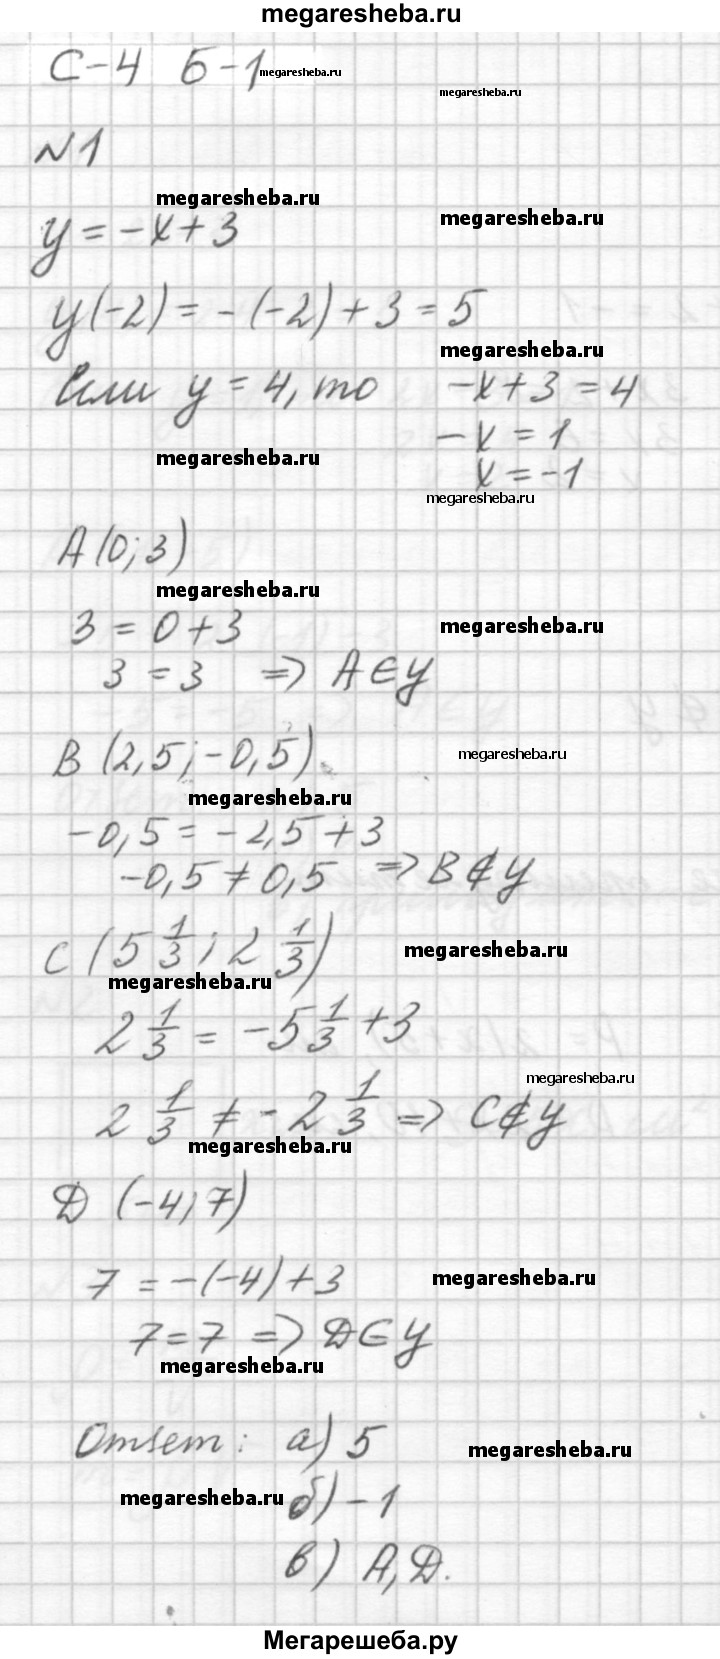 megaresheba.ru
С-4 Б-1
megaresheba.ru
megaresheba.ru
N1
megaresheba.ru
megaresheba.ru
y = -x + 3
y(-2) = -(-2) + 3 = 5
megaresheba.ru
Если y = 4, то -x + 3 = 4
-x = 1
megaresheba.ru
x = -1
megaresheba.ru
A (0; 3)
megaresheba.ru
3 = 0 + 3
megaresheba.ru
3 = 3 => A ∈ y
B (2,5; -0,5)
megaresheba.ru
megaresheba.ru
-0,5 = -2,5 + 3
-0,5 ≠ 0,5 => B ∉ y
C (5 1/3; 2 1/3)
megaresheba.ru
megaresheba.ru
2 1/3 = -5 1/3 + 3
megaresheba.ru
2 1/3 ≠ -2 1/3 => C ∉ y
megaresheba.ru
D (-4; 7)
7 = -(-4) + 3
megaresheba.ru
7 = 7 => D ∈ y
megaresheba.ru
Ответ: а) 5
megaresheba.ru
megaresheba.ru
б) -1
в) A, D.
Мегарешеба.ру